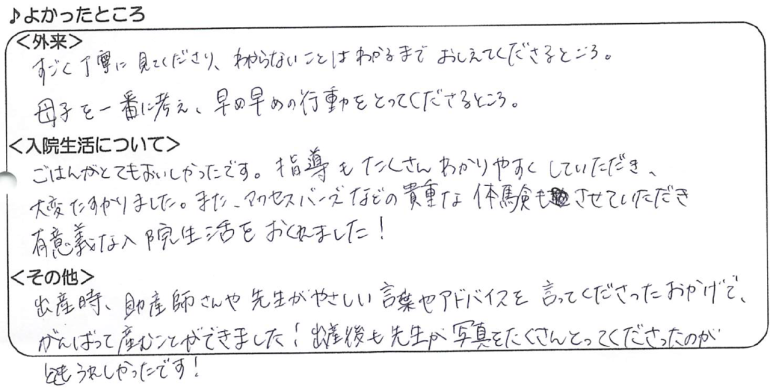 ♪よかったところ
<外来>
すごく丁寧に見てくださり、わからないことはわかるまでおしえてくださるところ。
母子を一番に考え、早め早めの行動をとってくださるところ。
<入院生活について>
ごはんがとてもおいしかったです。指導もたくさんわかりやすくしていただき、
大変たすかりました。また、アクセスバーズなどの貴重な体験もさせていただき
有意義な入院生活をおくれました！
<その他>
出産時、助産師さんや先生がやさしい言葉やアドバイスを言ってくださったおかげで、
がんばって産むことができました！出産後も先生が写真をたくさんとってくださったのが
とてもうれしかったです！